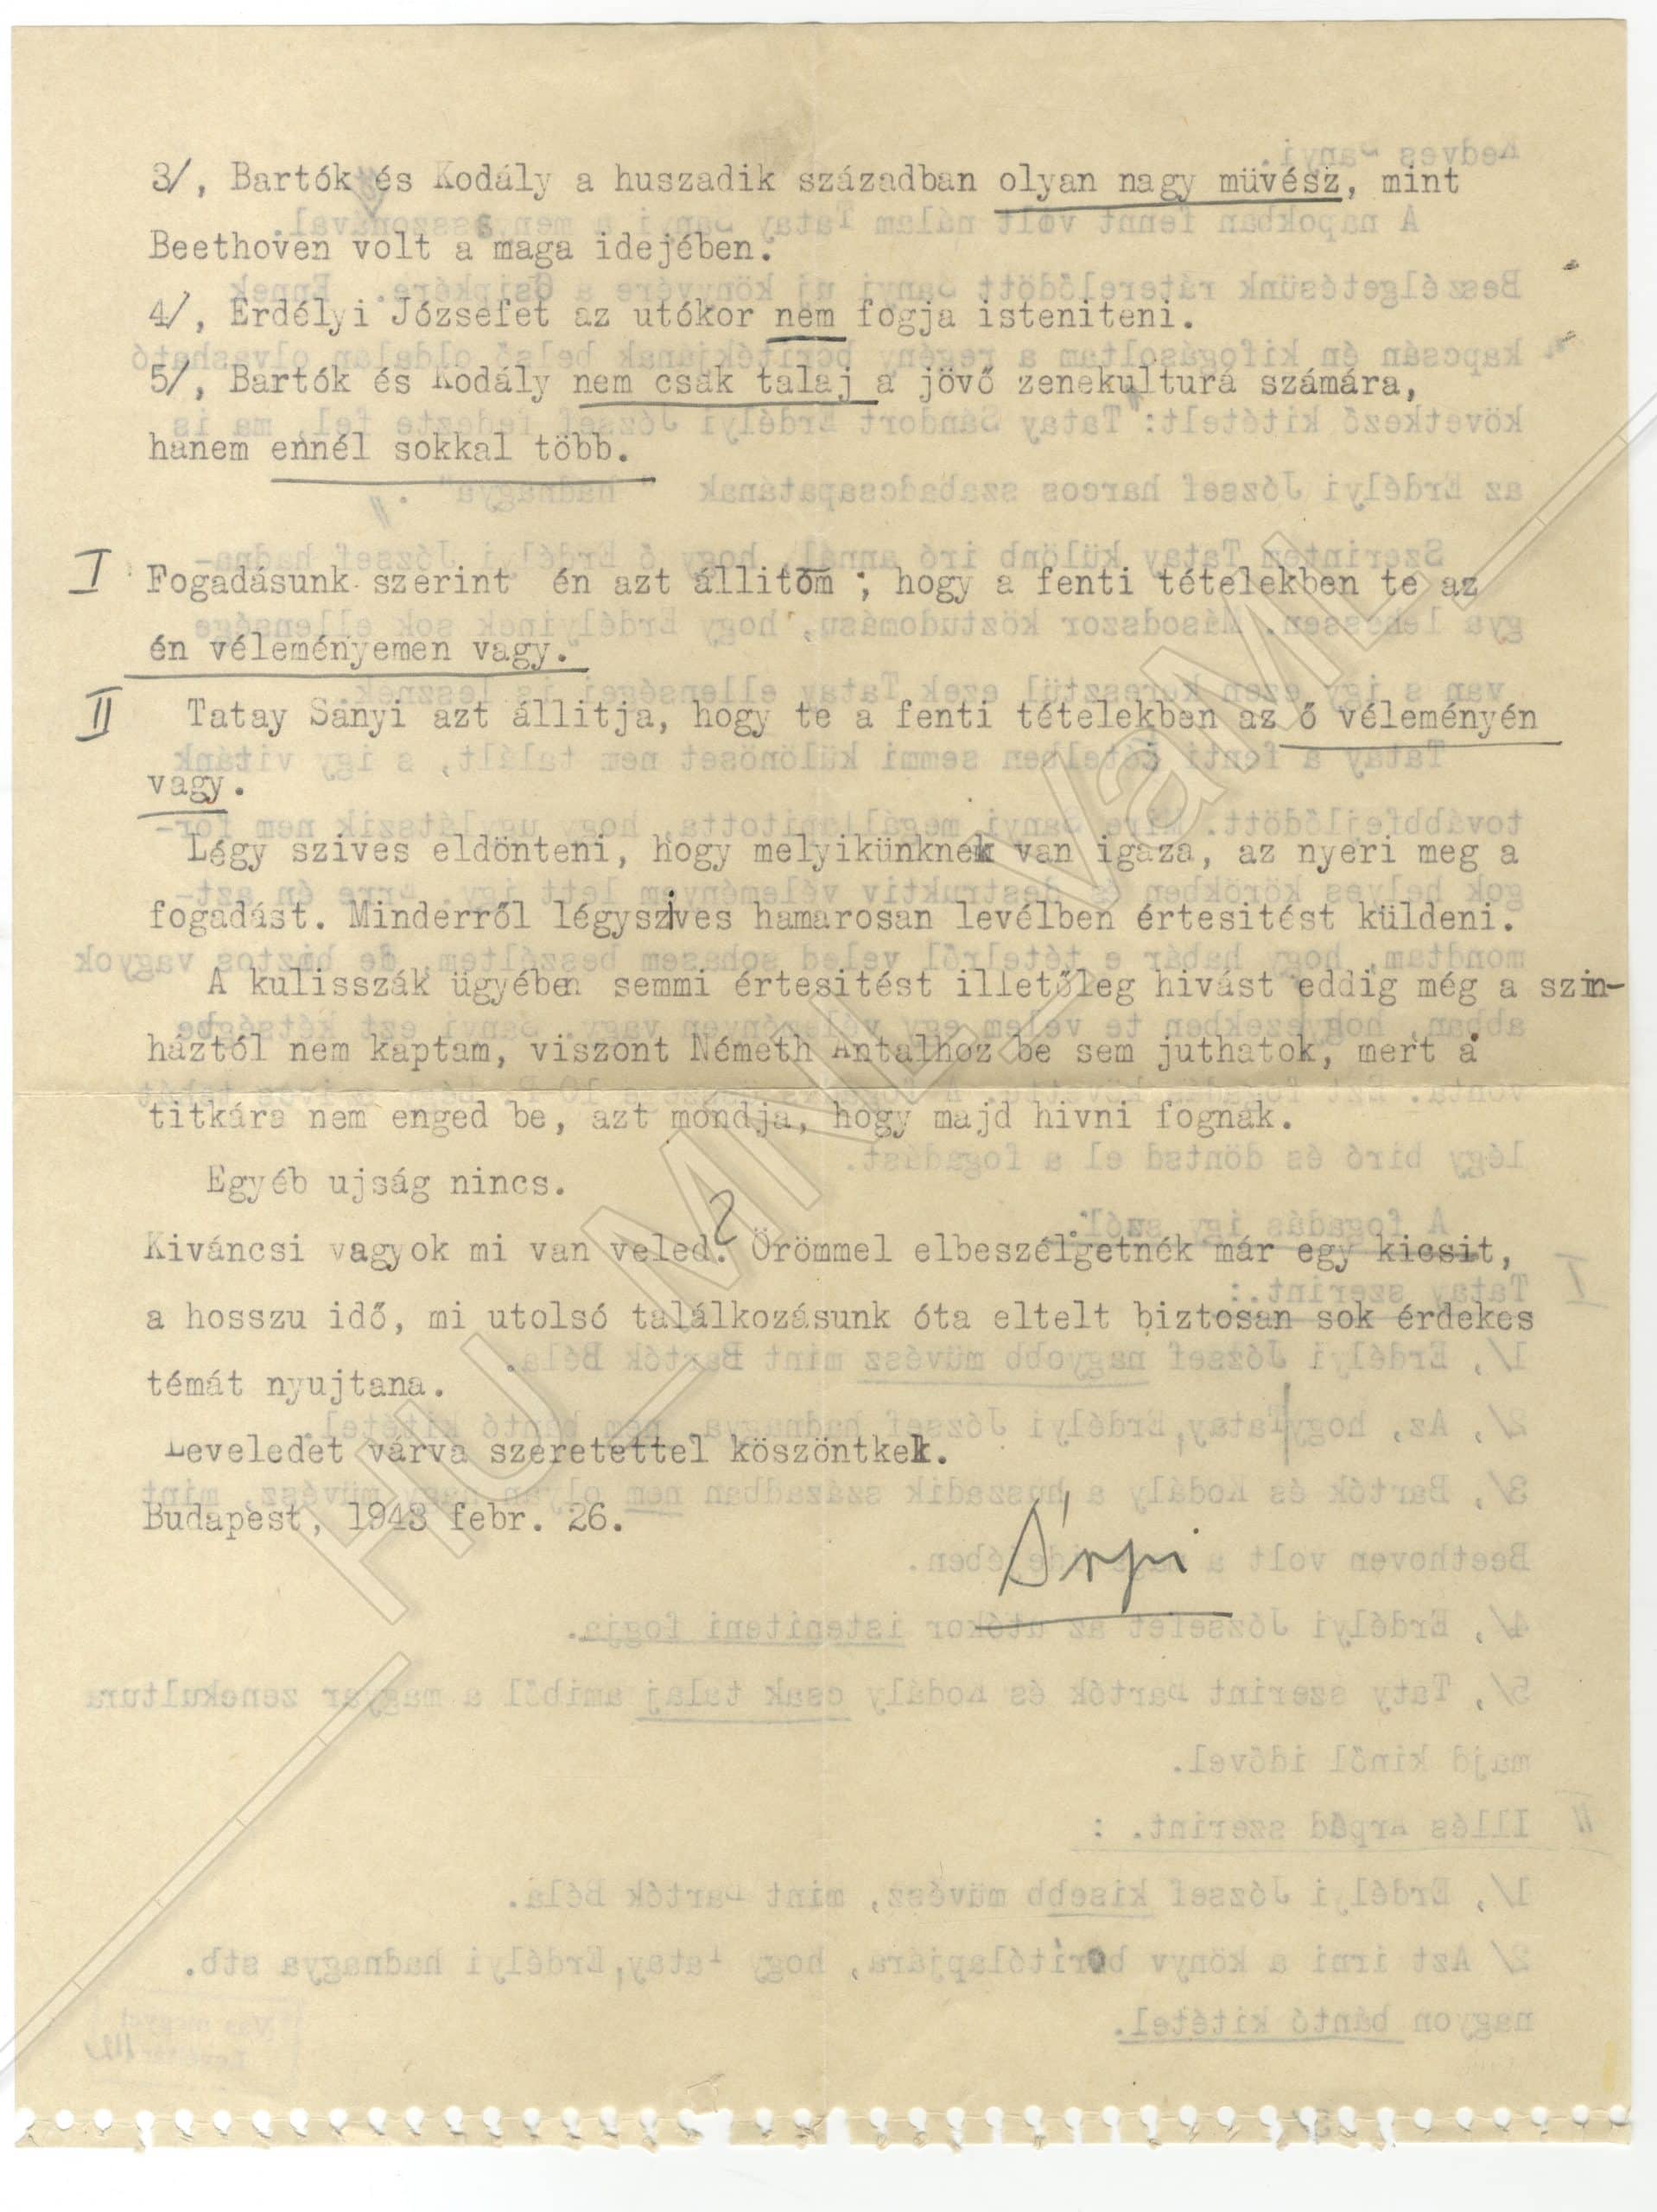 3/, Bartók és Kodály a huszadik században olyan nagy müvész, mint
Beethoven volt a maga idejében.
4/, Erdélyi Józsefet az utókor nem fogja isteniteni.
5/, Bartók és Kodály nem csak talaj a jövő zenekultura számára,
hanem ennél sokkal több.
I Fogadásunk szerint én azt állitom ; hogy a fenti tételekben te az
én véleményemen vagy.
II Tatay Sanyi azt állitja, hogy te a fenti tételekben az ő véleményén
vagy.
Légy szives eldönteni, hogy melyikünknek van igaza, az nyeri meg a
fogadást. Minderről légyszives hamarosan levélben értesitést küldeni.
A kulisszák ügyében semmi értesitést illetőleg hivást eddig még a szin-
háztól nem kaptam, viszont Németh Antalhoz be sem juthatok, mert a
titkára nem enged be, azt mondja, hogy majd hivni fognak.
Egyéb ujság nincs.
Kiváncsi vagyok mi van veled? Örömmel elbeszélgetnék már egy kicsit,
a hosszu idő, mi utolsó találkozásunk óta eltelt biztosan sok érdekes
témát nyujtana.
Leveledet várva szeretettel köszöntkek.
Budapest, 1943 febr. 26.
Árpi
HU_MNL_VaML